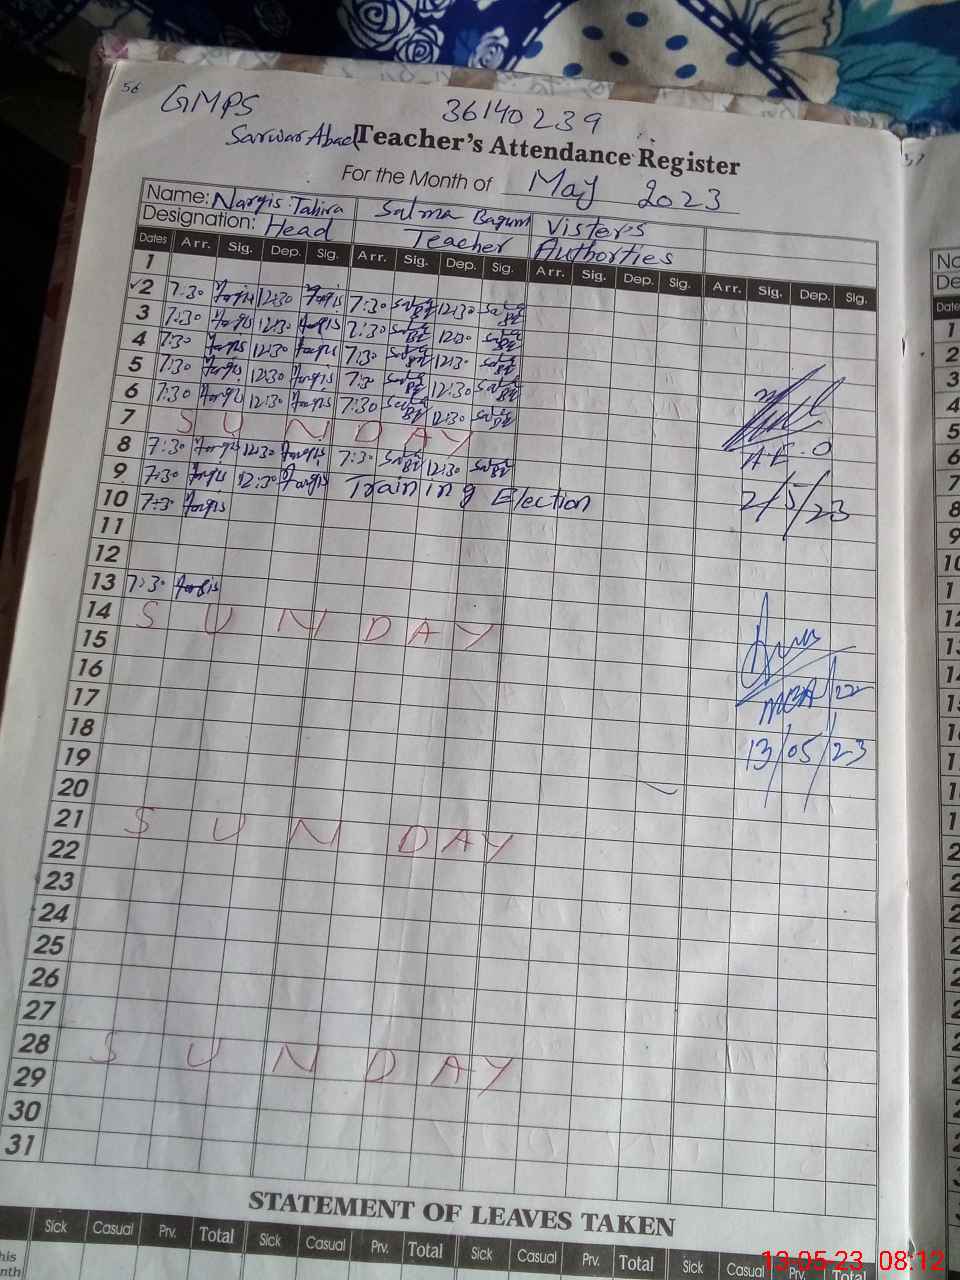 56
GMPS 36140239
Sarwar Abad
Teacher's Attendance Register
For the Month of May 2023
Name: Nargis Tahira Salma Bagum Visters
Designation: Head Teacher Authorties
Dates Arr. Sig. Dep. Sig. Arr. Sig. Dep. Sig. Arr. Sig. Dep. Sig. Arr. Sig. Dep. Sig.
1
2 7:30 12:30 7:30 12:30
3 7:30 12:30 7:30 12:30
4 7:30 12:30 7:30 12:30
5 7:30 12:30 7:30 12:30
6 7:30 12:30 7:30 12:30
7 SUNDAY
8 7:30 12:30 7:30 12:30
9 7:30 12:30 Training Election
10 7:30
11
12
13 7:30
14 SUNDAY
15
16
17
18
19
20
21 SUNDAY
22
23
24
25
26
27
28 SUNDAY
29
30
31
A.E.O
2/5/23
13/05/23
STATEMENT OF LEAVES TAKEN
Sick Casual Prv. Total Sick Casual Prv. Total Sick Casual Prv. Total Sick Casual Prv. Total
57
13-05-23 08:12